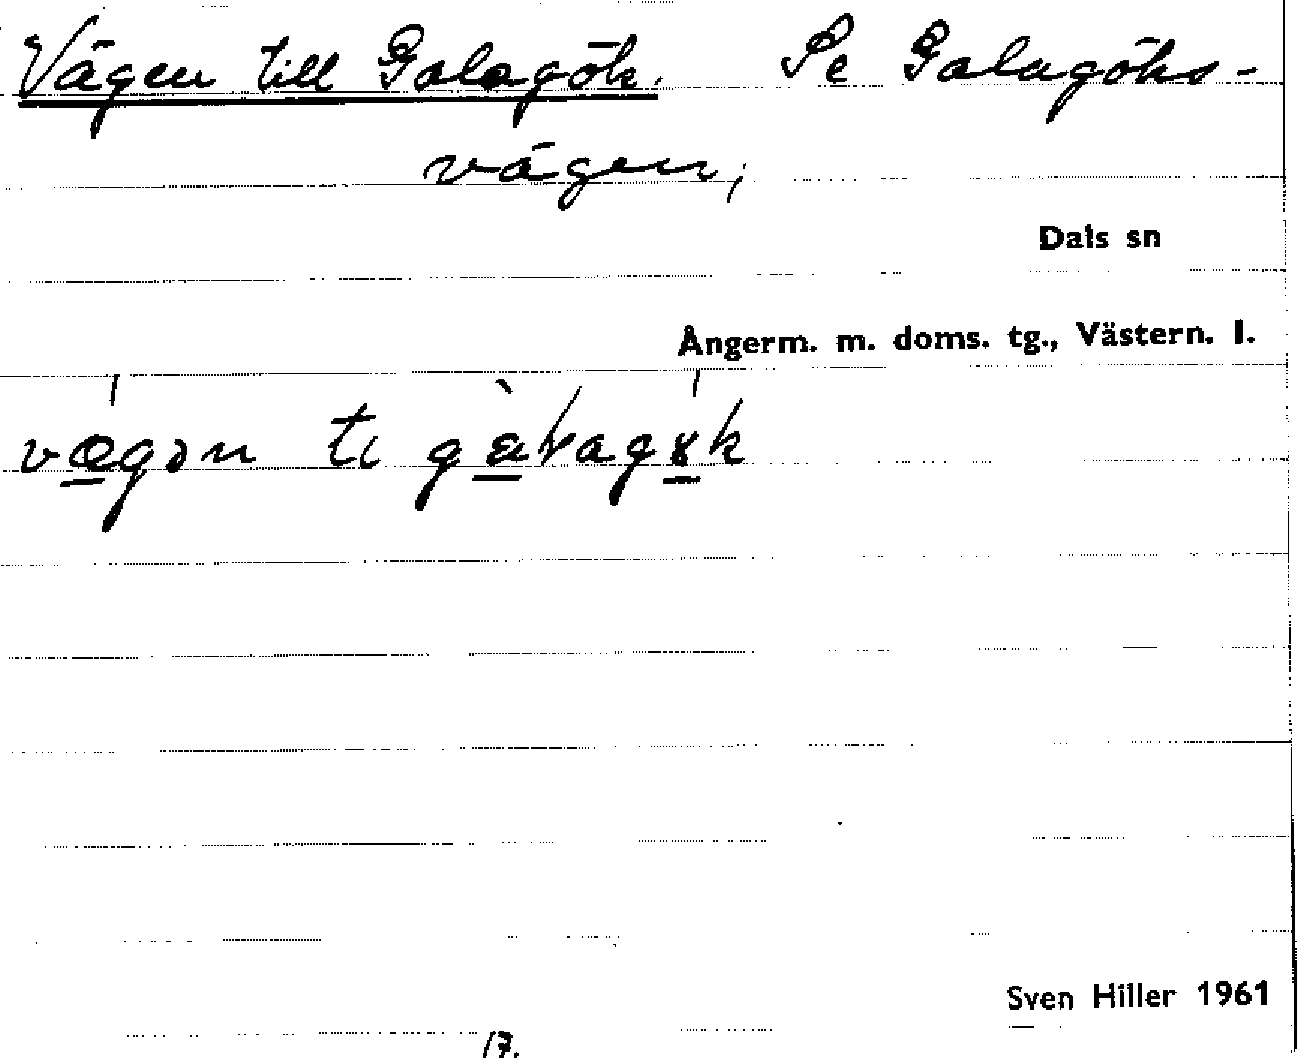 Vägen till Galagök. Se Galagöks-
vägen,
Dals sn
Ångerm. m. doms. tg., Västern. l.
vægən ti
Sven Hiller 1961
17.